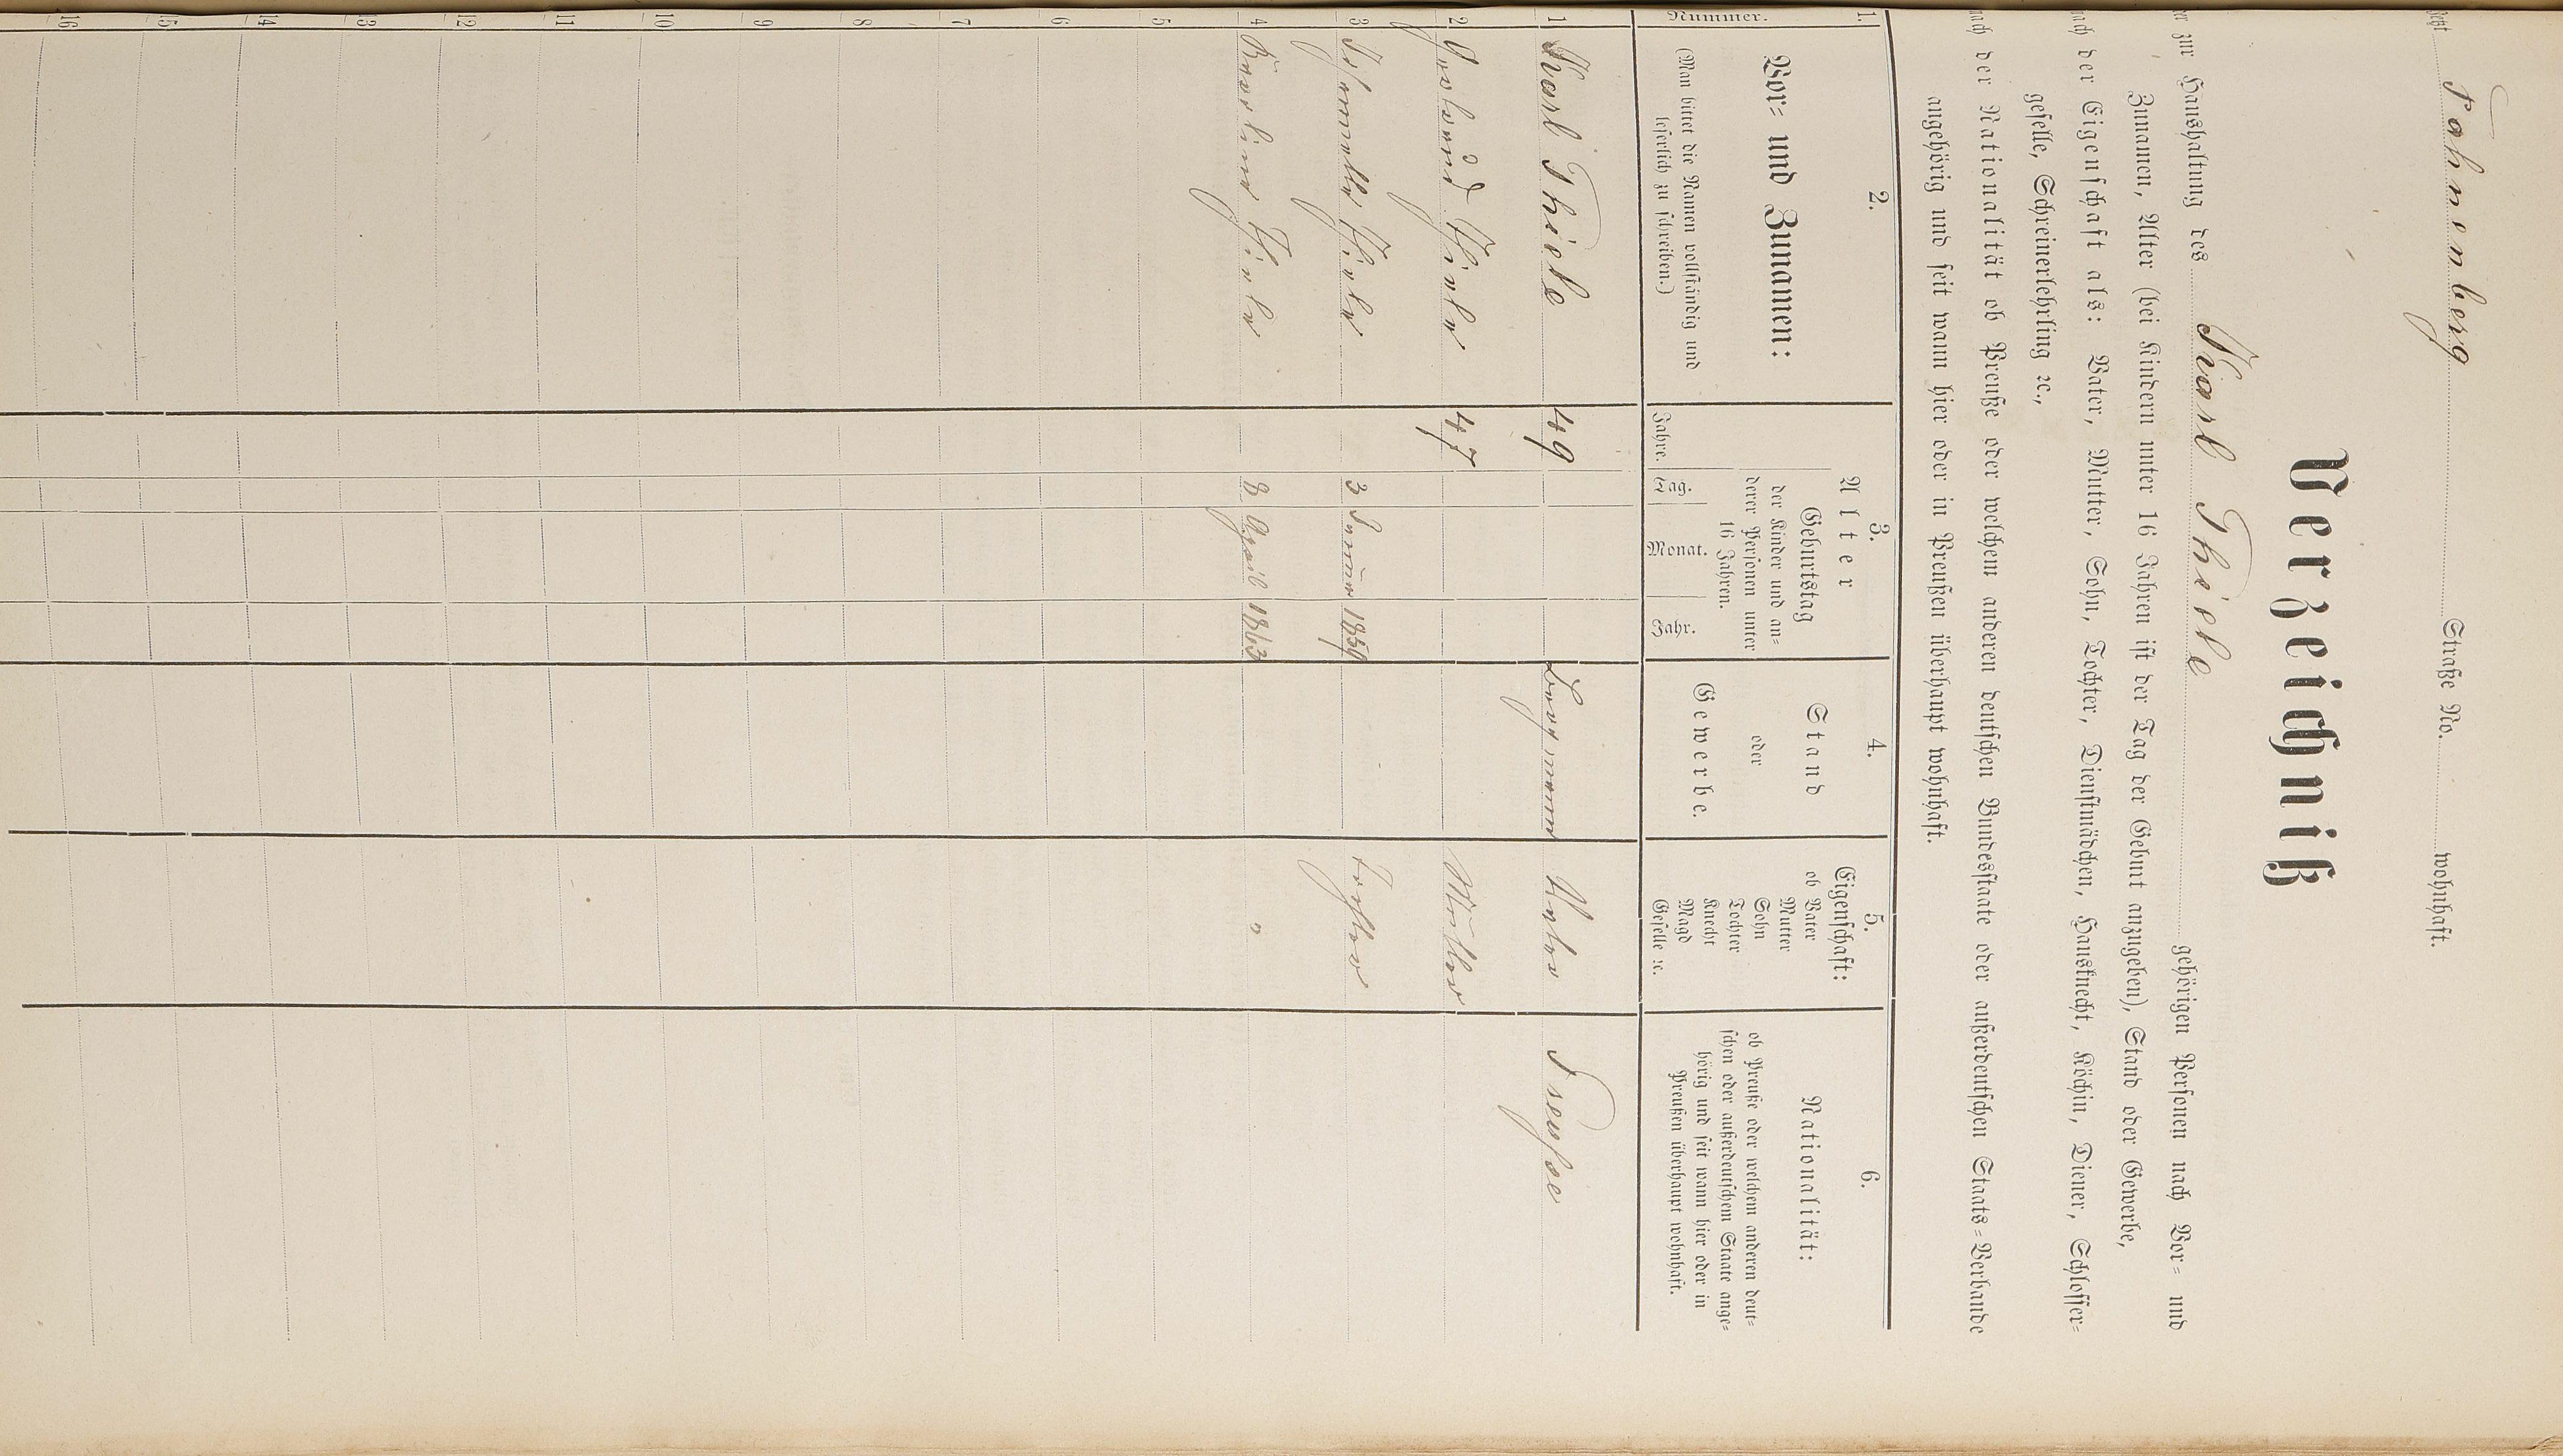 Jetzt Fahnenberg Straße No. wohnhaft.
Verzeichniß
der zur Haushaltung des Karl Thiele gehörigen Personen nach Vor- und
Zunamen, Alter (bei Kindern unter 16 Jahren ist der Tag der Geburt anzugeben), Stand oder Gewerbe,
nach der Eigenschaft als: Vater, Mutter, Sohn, Tochter, Dienstmädchen, Hausknecht, Köchin, Diener, Schlosser-
geselle, Schreinerlehrling ꝛc.,
nach der Nationalität ob Preuße oder welchem anderen deutschen Bundesstaate oder außerdeutschen Staats-Verbande
angehörig und seit wann hier oder in Preußen überhaupt wohnhaft.
1. 2. 3. 4. 5. 6.
Nummer.
Vor- und Zunamen:
(Man bittet die Namen vollständig und
leserlich zu schreiben.)
Alter
Jahre.
Geburtstag
der Kinder und an-
derer Personen unter
16 Jahren.
Tag. Monat. Jahr.
Stand
oder
Gewerbe.
Eigenschaft:
ob Vater
Mutter
Sohn
Tochter
Knecht
Magd
Geselle ꝛc.
Nationalität:
ob Preuße oder welchem anderen deut-
schen oder außerdeutschem Staate ange-
hörig und seit wann hier oder in
Preußen überhaupt wohnhaft.
1 Karl Thiele 49 Bergmann Vater Preuße
2 Thiele 47 Mutter
3 Thiele 3 Januar 1859 Tochter
4 Karoline Thiele 8 April 1863 "
5
6
7
8
9
10
11
12
13
14
15
16